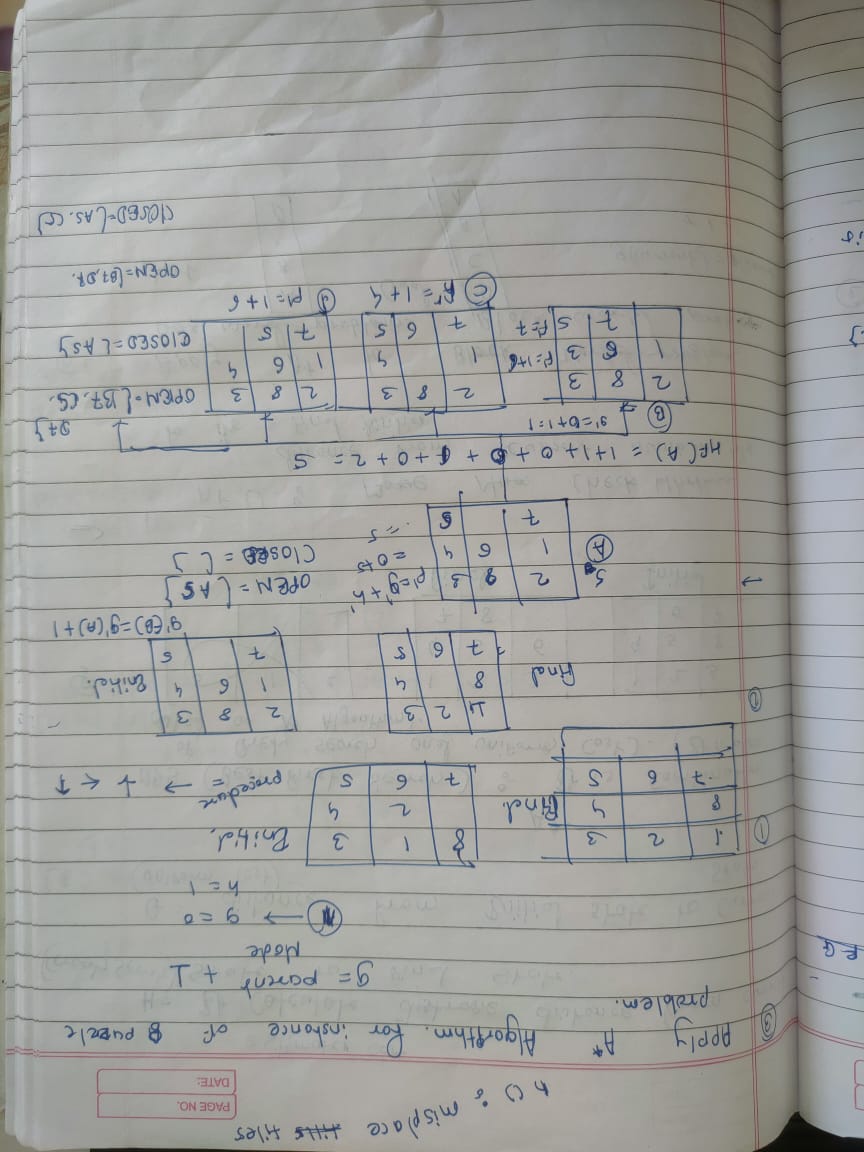 h() : misplace tiles
PAGE NO.
DATE:
③ Apply A* Algorithm. For instance of 8 puzzle
problem.
g = parent + 1
Node
N → g = 0
h = 1
① 1 2 3
8 4 Find.
7 6 5
8 1 3 Initial.
2 4
7 6 5
procedure → ↓ ← ↑
① Final
1 2 3
8 4
7 6 5
2 8 3
1 6 4 Initial.
7 5
g'(B) = g'(A) + 1
→ S
A
2 8 3
1 6 4
7 5
f' = g' + h'
= 0+5
= 5
OPEN = [A5]
Closed = [ ]
HF(A) = 1+1+0+0+1+0+2 = 5
B g' = 0+1 = 1
2 8 3
1 6 3 f' = 1+6
7 5 f' = 7
2 8 3
1 4
7 6 5
C h' = 1+4
2 8 3
1 6 4
7 5
f' = 1+6
D7}
OPEN = {B7, C5,
CLOSED = {A5}
OPEN = [B7, D7.
CLOSED = [A5, C5]
RG